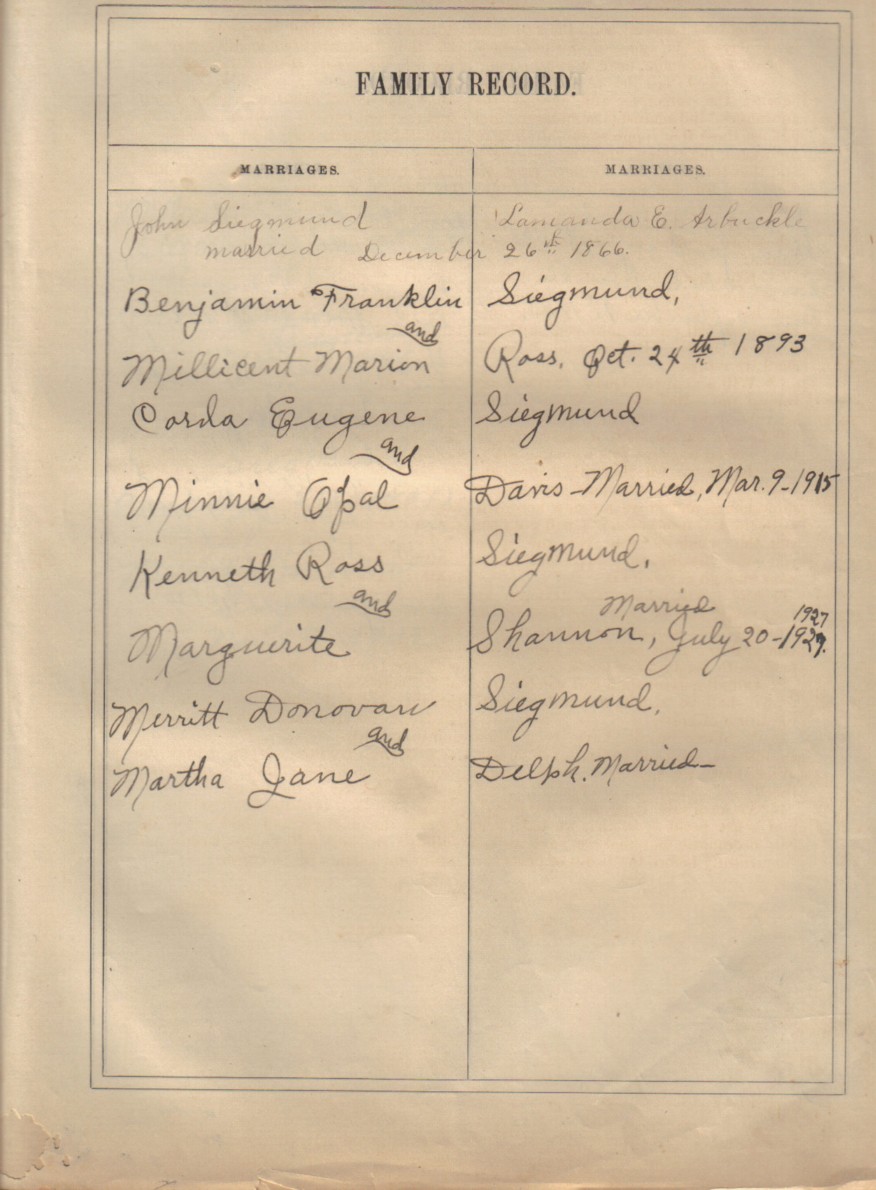 FAMILY RECORD.
MARRIAGES. MARRIAGES.
John Siegmund Lamanda E. Arbuckle
married December 26th 1866.
Benjamin Franklin Siegmund,
and
Millicent Marion Ross, Oct. 24th 1893
Corda Eugene Siegmund
and
Minnie Opal Davis - Married, Mar. 9-1915
Kenneth Ross Siegmund,
and
Married 1927
Marguerite Shannon, July 20-1929.
Merritt Donovan Siegmund,
and
Martha Jane Delph. Married-